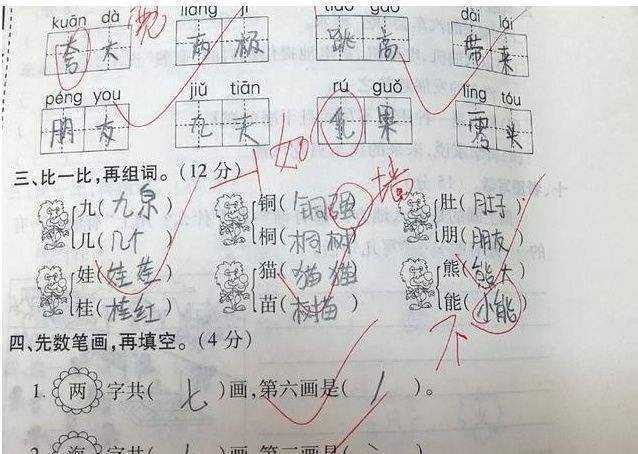 kuān dà liǎng jí tiào gāo dài lái
夸大 两极 跳高 带来
宽
péng you jiǔ tiān rú guǒ líng tóu
朋友 九天 果 零头
如
三、比一比,再组词。(12分)
九(九泉) 铜(铜强) 肚(肚子)
墙
儿(几个) 桐(桐树) 朋(朋友)
娃(娃差) 猫(猫猫) 熊(熊大)
桂(桂红) 苗(树描) 能(小能)
不
四、先数笔画,再填空。(4分)
1. 两 字共( 七 )画,第六画是( 丿 )。